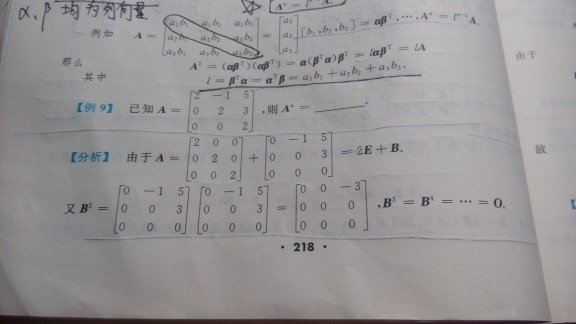 α,β 均为列向量
Aⁿ = lⁿ⁻¹A.
例如 A = [a₁b₁ a₁b₂ a₁b₃; a₂b₁ a₂b₂ a₂b₃; a₃b₁ a₃b₂ a₃b₃] = [a₁; a₂; a₃][b₁,b₂,b₃] = αβᵀ,⋯,Aⁿ = lⁿ⁻¹A.
那么 A² = (αβᵀ)(αβᵀ) = α(βᵀα)βᵀ = lαβᵀ = lA
其中 l = βᵀα = αᵀβ = a₁b₁ + a₂b₂ + a₃b₃.
【例 9】 已知 A = [2 −1 5; 0 2 3; 0 0 2],则 Aⁿ = ______.
【分析】 由于 A = [2 0 0; 0 2 0; 0 0 2] + [0 −1 5; 0 0 3; 0 0 0] = 2E + B.
又 B² = [0 −1 5; 0 0 3; 0 0 0][0 −1 5; 0 0 3; 0 0 0] = [0 0 −3; 0 0 0; 0 0 0],B³ = B⁴ = ⋯ = O.
· 218 ·
由于
故